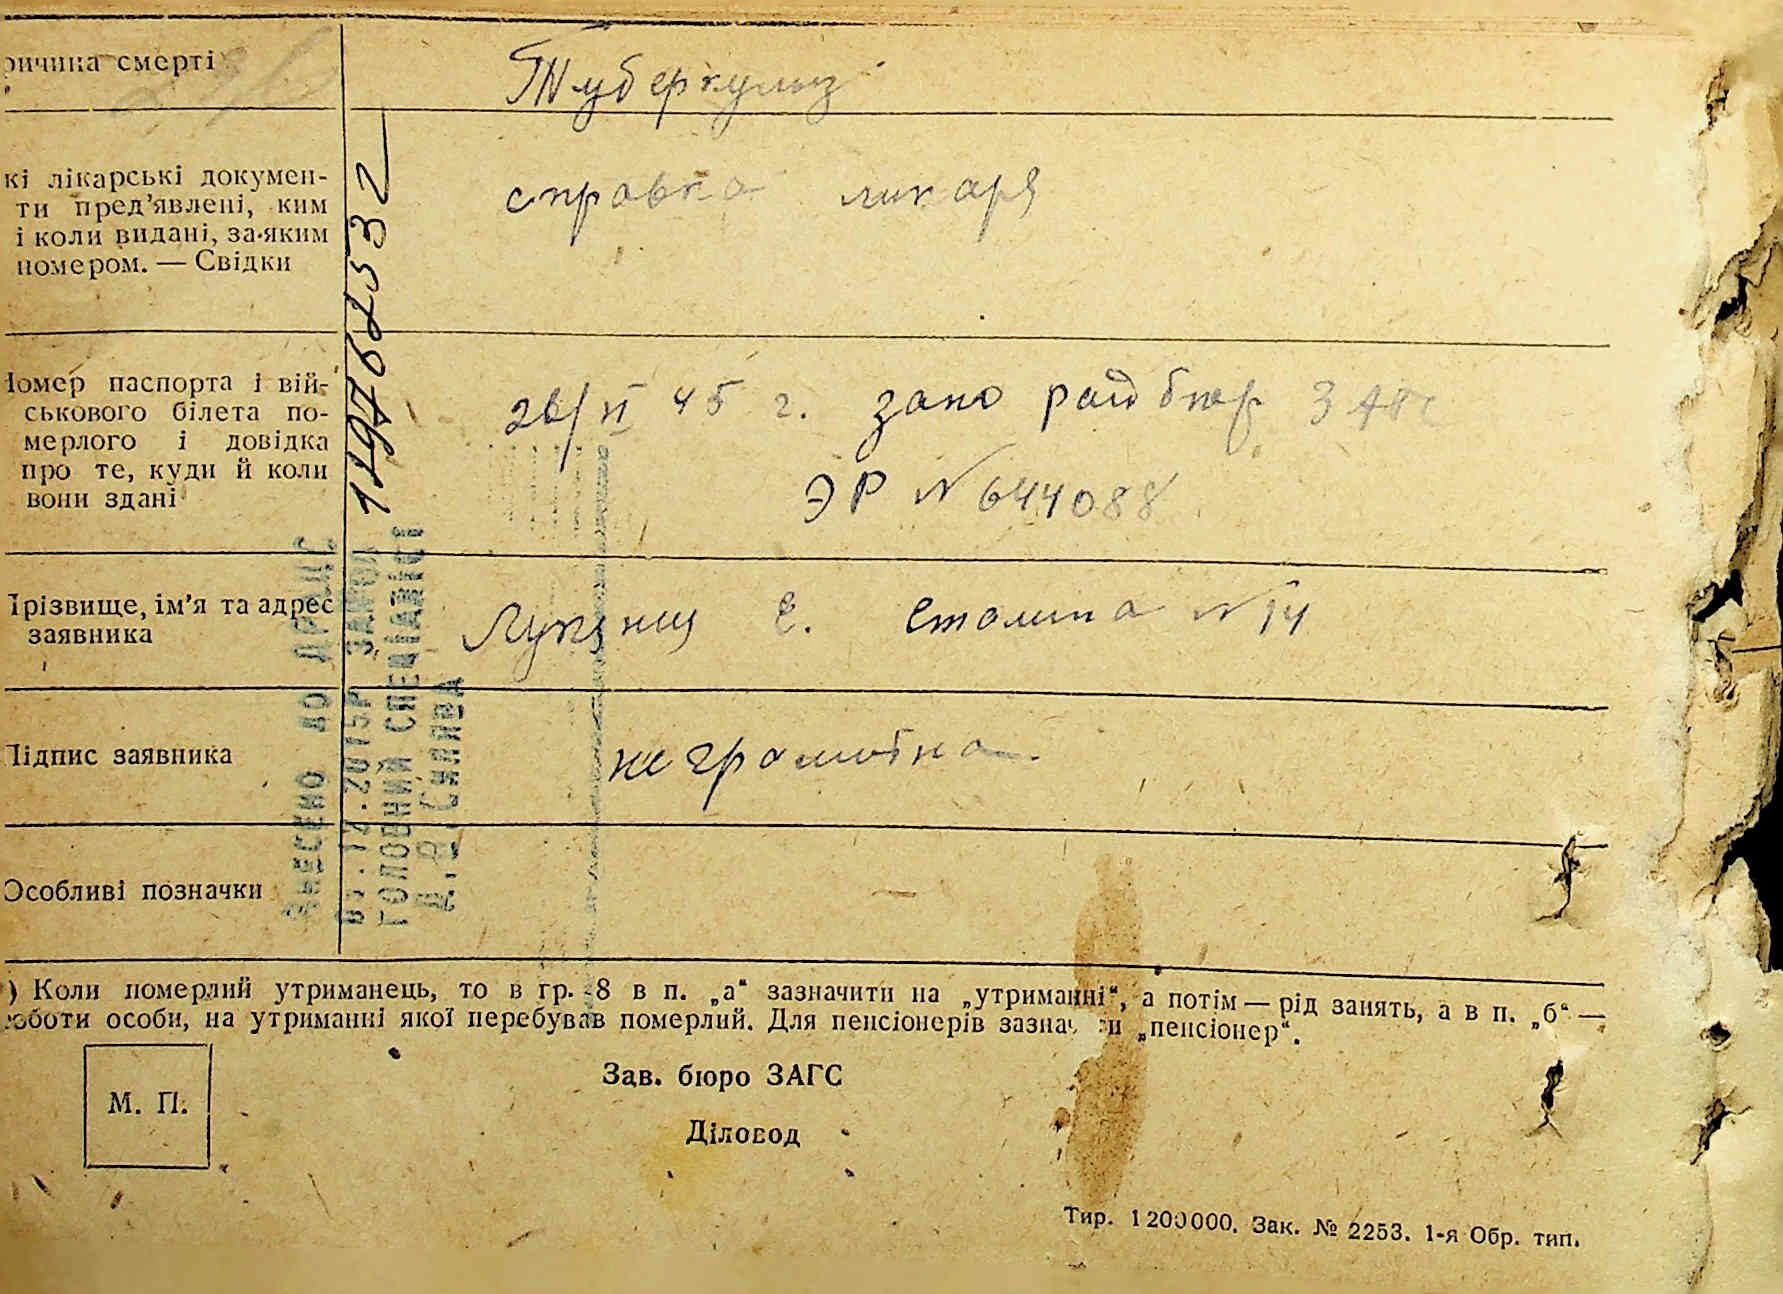 ричина смерті
Туберкульоз
кі лікарські докумен-
ти пред’явлені, ким
і коли видані, за яким
номером. — Свідки
справка ликаря
Номер паспорта і вій-
ськового білета по-
мерлого і довідка
про те, куди й коли
вони здані
26/II 45 г. райбюр ЗАГС
ЭР № 644088
Прізвище, ім’я та адрес
заявника
Е. Сталина № 14
Підпис заявника
неграмотна.
Особливі позначки
ВНЕСЕНО ДО ДРАЦС
ГОЛОВНИЙ СПЕЦІАЛІСТ
) Коли померлий утриманець, то в гр. 8 в п. „а“ зазначити на „утриманні“, а потім — рід занять, а в п. „б“ —
роботи особи, на утриманні якої перебував померлий. Для пенсіонерів зазнач ти „пенсіонер“.
М. П.
Зав. бюро ЗАГС
Діловод
Тир. 1200000. Зак. № 2253. 1-я Обр. тип.